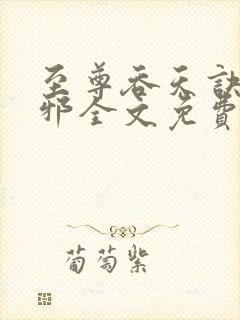 至尊吞天诀
邪全文免费
葡萄紫